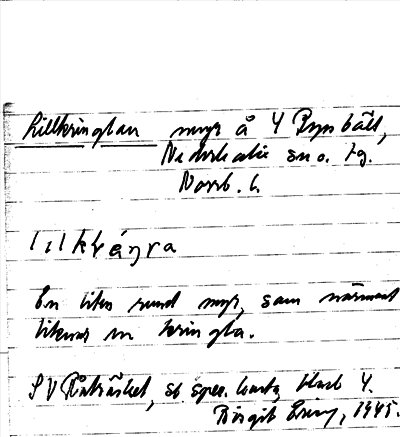 Lillkringlan myr å Y Rynbält,
Nederkalix sn o. tg.
Norrb. l.
lılkráŋra
En liten rund myr, som närmast
liknar en kringla.
SV Råträsket, se spec. karta, blad 4.
Birgit Ering, 1945.